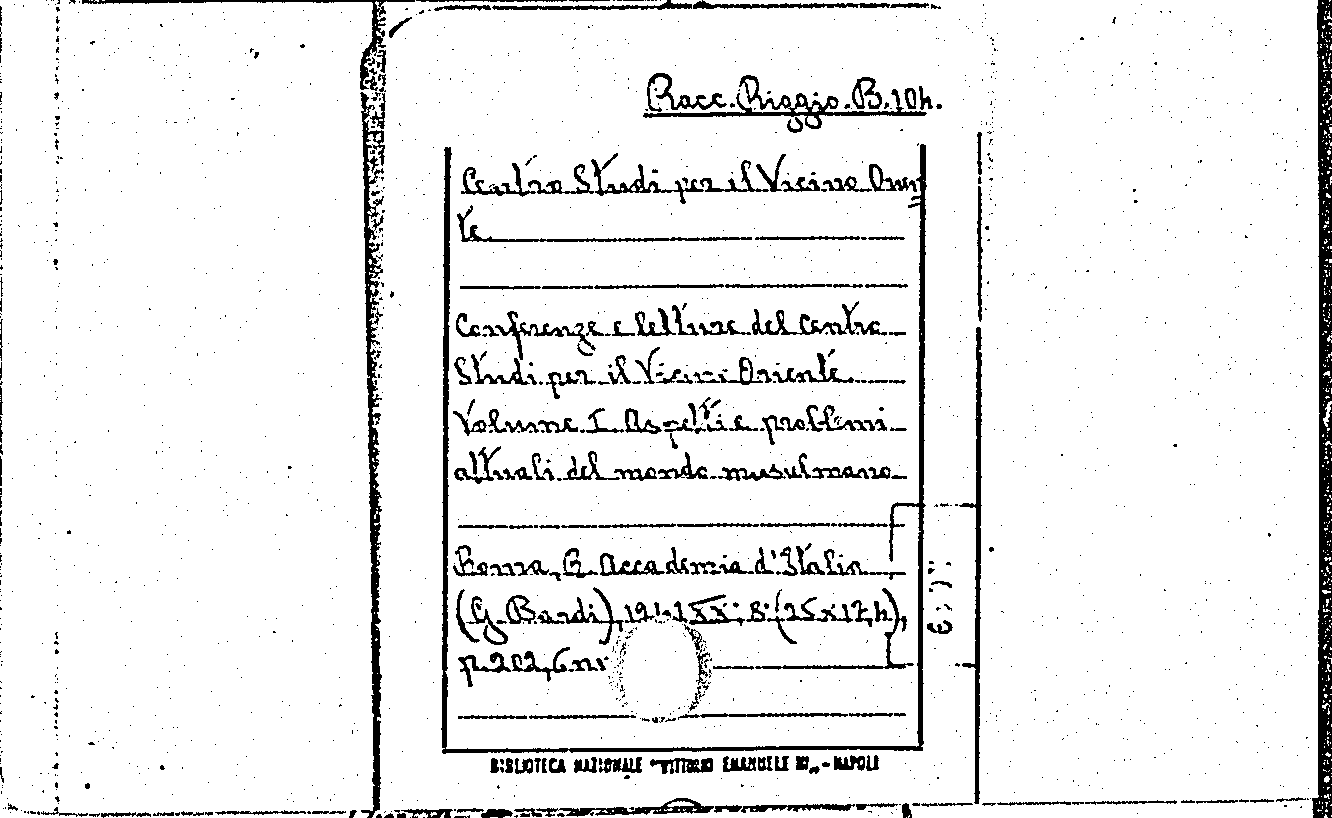 Racc. Riggio. B. 104.
Centro Studi per il Vicino Orien
te
Conferenze e letture del Centro
Studi per il Vicini Oriente.
Volume I. Aspetti e problemi
attuali del mondo musulmano
Roma, R. Accademia d'Italia
(G. Bardi), 1941 XX; 8: (25x17,4),
p. 202, 6 nr
BIBLIOTECA NAZIONALE "VITTORIO EMANUELE III" - NAPOLI